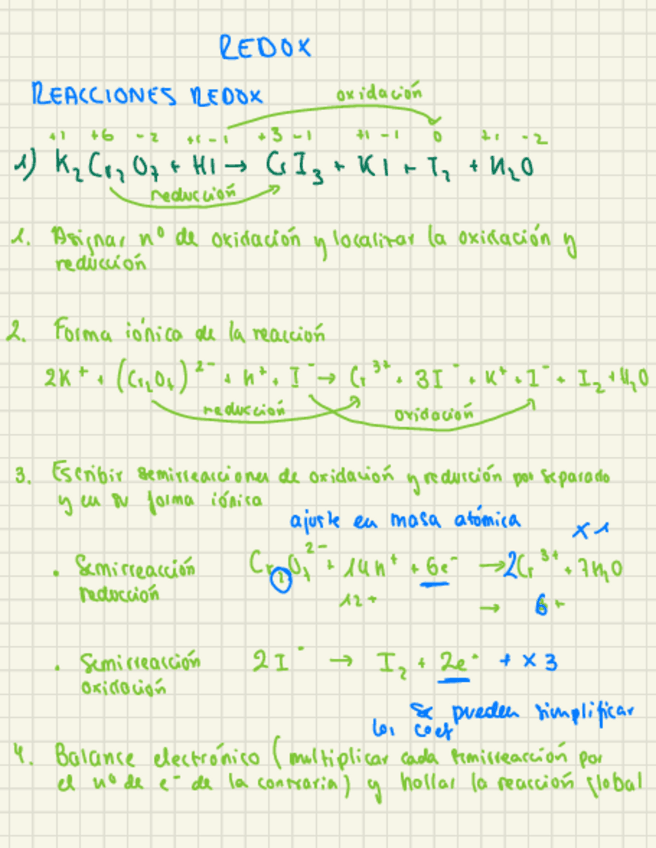 REDOX
REACCIONES REDOX
oxidación
+1 +6 -2 +1 -1 +3 -1 +1 -1 0 +1 -2
1) K₂Cr₂O₇ + HI → CrI₃ + KI + I₂ + H₂O
reducción
1. Asignar nº de oxidación y localizar la oxidación y
reducción
2. Forma iónica de la reacción
2K⁺ + (Cr₂O₇)²⁻ + H⁺ + I⁻ → Cr³⁺ + 3I⁻ + K⁺ + I⁻ + I₂ + H₂O
reducción oxidación
3. Escribir semirreacciones de oxidación y reducción por separado
y en su forma iónica
ajuste en masa atómica
x 1
• Semirreacción Cr₂O₇²⁻ + 14H⁺ + 6e⁻ → 2Cr³⁺ + 7H₂O
reducción 12+ → 6+
• Semirreacción 2I⁻ → I₂ + 2e⁻ + x3
oxidación
Se pueden simplificar
los coef
4. Balance electrónico (multiplicar cada semirreacción por
el nº de e⁻ de la contraria) y hallar la reacción global